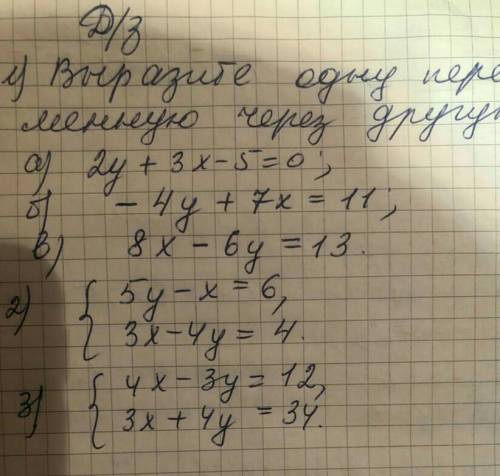 Д/з
1) Выразите одну пере
менную через другу
а) 2y + 3x - 5 = 0;
б) - 4y + 7x = 11;
в) 8x - 6y = 13.
2) { 5y - x = 6,
3x - 4y = 4.
3) { 4x - 3y = 12,
3x + 4y = 34.